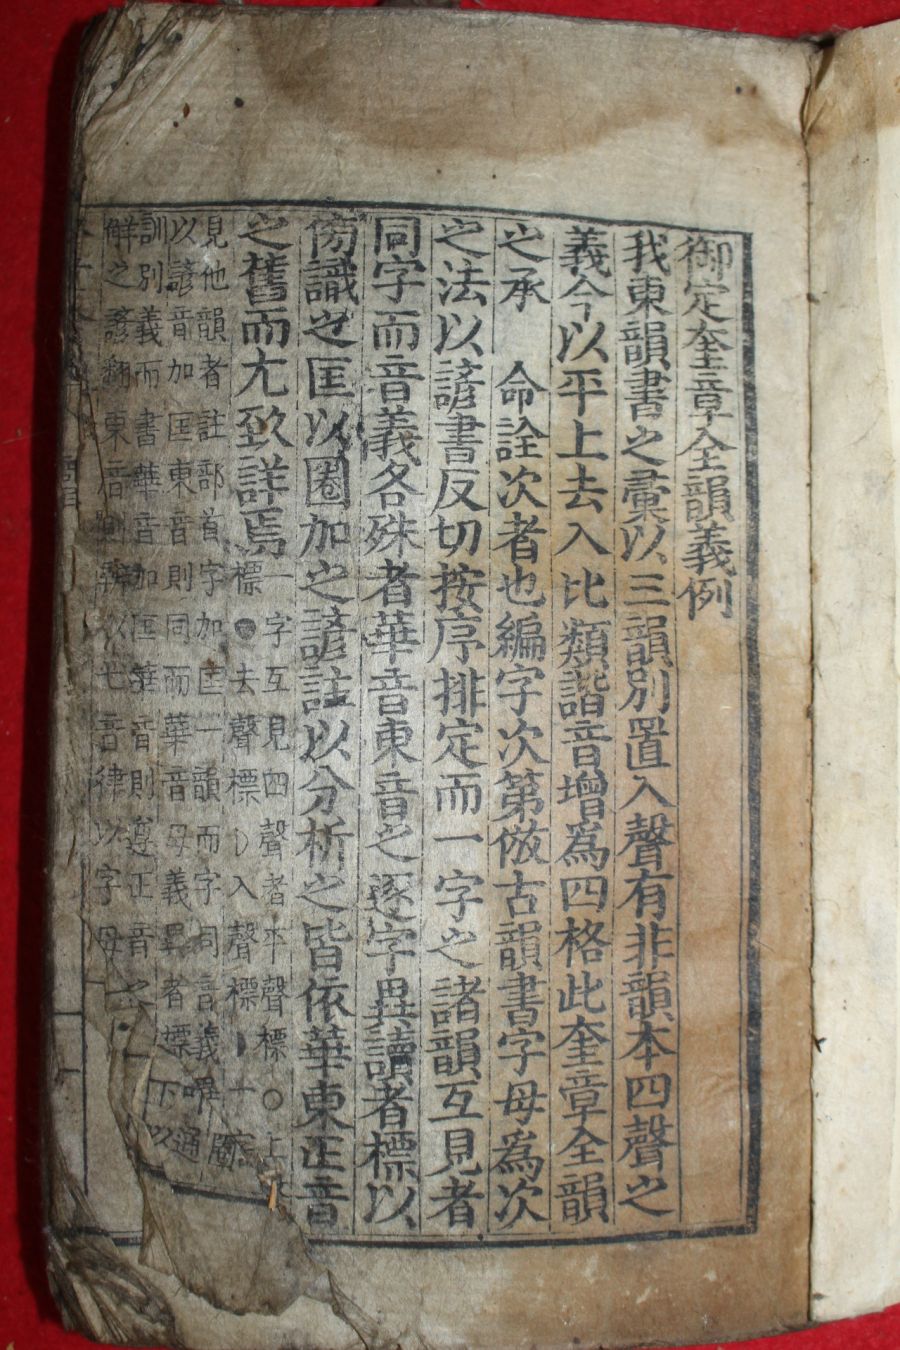 御定奎章全韻義例
我東韻書之彙以三韻別置入聲有非韻本四聲之
義今以平上去入比類諧音增爲四格此奎章全韻
之承 命詮次者也編字次第倣古韻書字母爲次
之法以諺書反切按序排定而一字之諸韻互見者
同字而音義各殊者華音東音之逐字異讀者標以
傍識之匡以圈加之諺註以分析之皆依華東正音
之舊而尤致詳焉
一字互見四聲者平聲標○上
標 去聲標 入聲標
見他韻者註部首字加匡一韻而字同音義
以諺音加匡東音則同而華音母義異者標下以
訓別義而書華音加匡華音則遵正音之
解之諺翻東 以字母